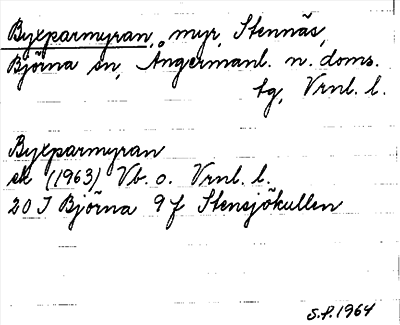 Byxparmyran, myr, Stennäs,
Björna sn, Ångermanl. n. doms.
tg, Vrnl. l.
Byxparmyran
ek (1963) Vb. o. Vrnl. l.
20 I Björna 9 f Stensjökullen
S.P. 1964